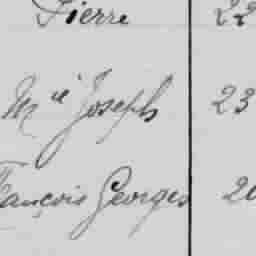 Pierre 22
Mie Joseph 23
François Georges 20